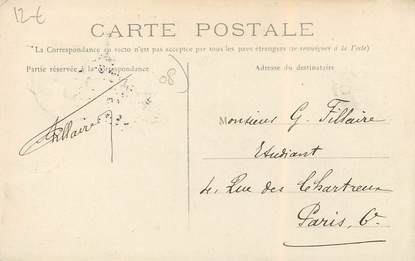 12-€
CARTE POSTALE
La Correspondance au recto n'est pas acceptée par tous les pays étrangers (se renseigner à la Poste)
Partie réservée à la correspondance
Adresse du destinataire
08)
Monsieur G. Fillaire
Fillaire
Etudiant
4, Rue des Chartreux
Paris, 6e